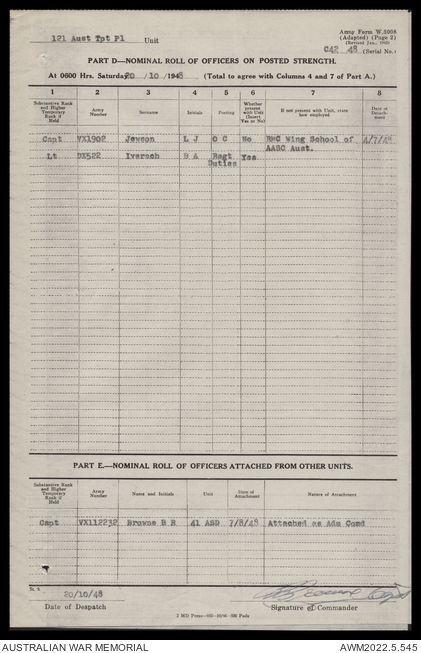 121 Aust Tpt Pl Unit
Army Form W.3008
(Adapted) (Page 2)
C42 48 (Serial No.)
PART D—NOMINAL ROLL OF OFFICERS ON POSTED STRENGTH.
At 0600 Hrs. Saturday 20 /10 /1948 (Total to agree with Columns 4 and 7 of Part A.)
1 2 3 4 5 6 7 8
Substantive Rank and Higher Temporary Rank if Held
Army Number
Surname
Initials
Posting
Whether present with Unit (Insert Yes or No)
If not present with Unit, state how employed
Date of Detachment
Capt VX1902 Jewson L J O C No RMC Wing School of 4/7/48
AASC Aust.
Lt DX522 Iversch B A Regt Yes
Duties
PART E.—NOMINAL ROLL OF OFFICERS ATTACHED FROM OTHER UNITS.
Substantive Rank and Higher Temporary Rank if Held
Army Number
Name and Initials
Unit
Date of Attachment
Nature of Attachment
Capt VX112232 Browne B H 41 AOD 7/8/48 Attached as Adm Comd
20/10/48
Date of Despatch
Signature of Commander
AUSTRALIAN WAR MEMORIAL
AWM2022.5.545